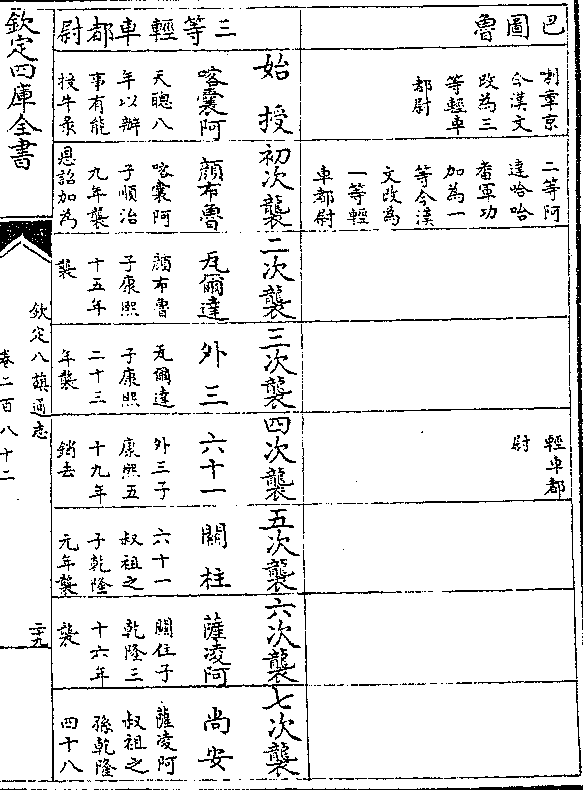 巴圖魯
制章京
今漢文
改為三
等輕車
都尉
二等阿
達哈哈
番軍功
加為一
等今漢
文改為
一等輕
車都尉
輕車都
尉
三等輕車都尉
始授
喀囊阿
天聰八
年以辦
事有能
授牛彔
初次襲
顏布魯
喀囊阿
子順治
九年襲
恩詔加為
二次襲
瓦爾達
顏布魯
子康熙
十五年
襲
三次襲
外三
瓦爾達
子康熙
二十三
年襲
四次襲
六十一
外三子
康熙五
十九年
銷去
五次襲
關柱
六十一
叔祖之
子乾隆
元年襲
六次襲
薩淩阿
關住子
乾隆三
十六年
襲
七次襲
尚安
薩淩阿
叔祖之
孫乾隆
四十八
欽定四庫全書
欽定八旗通志
卷二百八十二
三十九